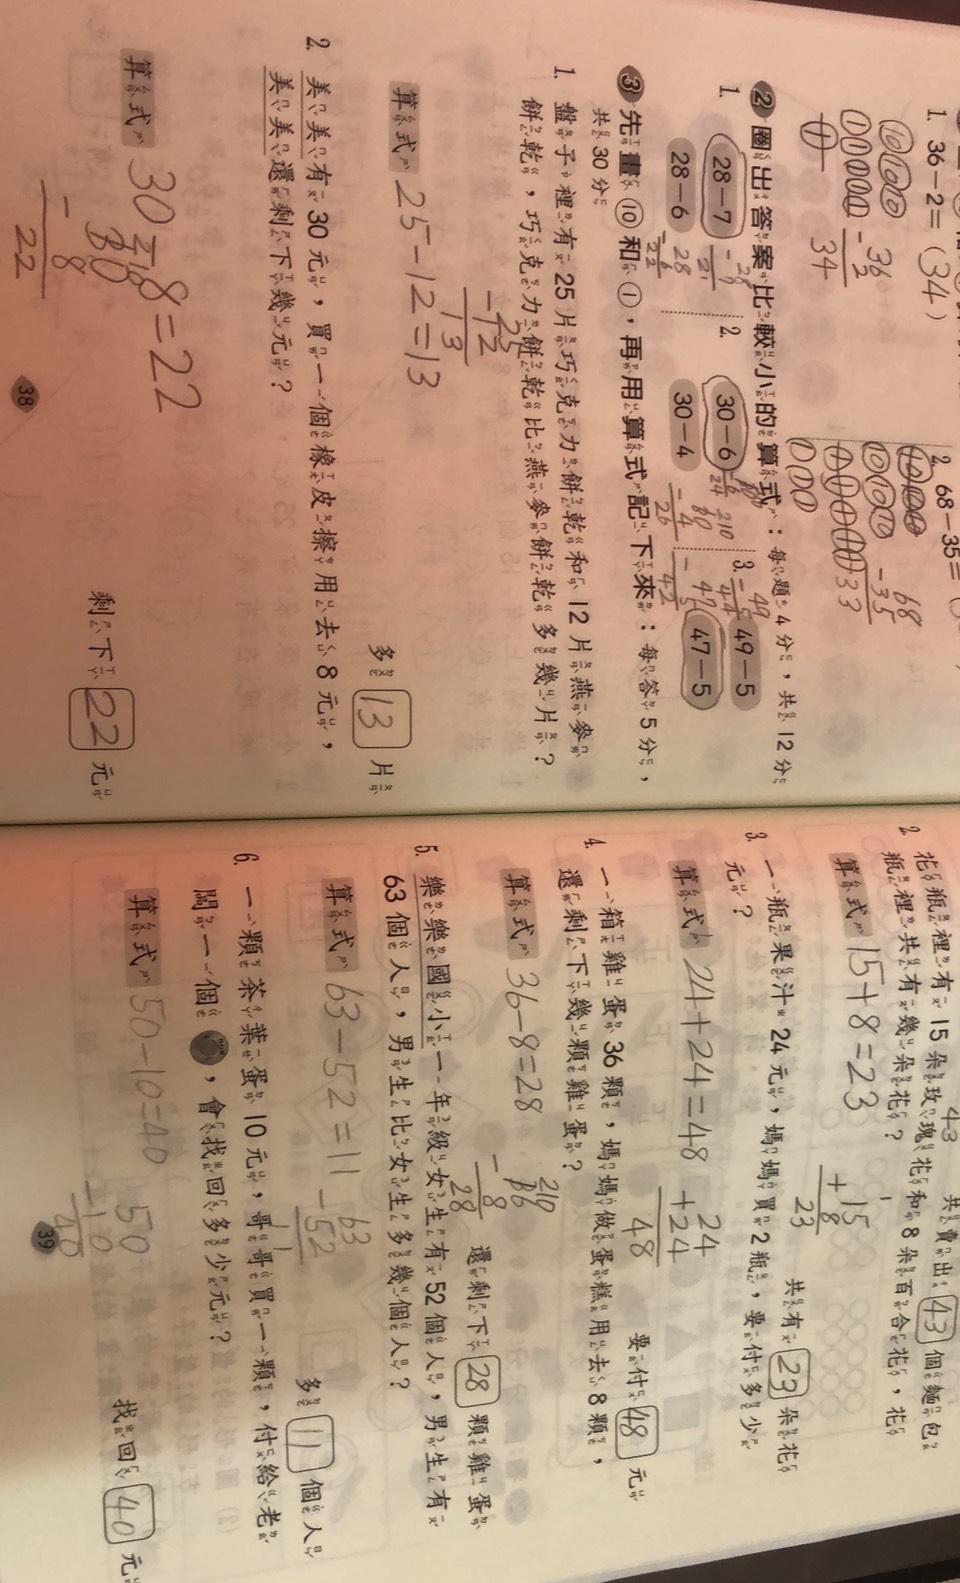 1. 36－2＝（34）
36
－2
34
2. 68－35＝
68
－35
33
❷ 圈出答案比較小的算式：每題4分，共12分
1. 28－7
28－6
28
－6
22
2. 30－6
30－4
－6
24
2 10
30
－4
26
3. 49－5
47－5
49
－5
44
47
－5
42
❸ 先畫⑩和①，再用算式記下來：每答5分，
共30分
1. 盤子裡有25片巧克力餅乾和12片燕麥
餅乾，巧克力餅乾比燕麥餅乾多幾片？
25
－12
13
算式 25－12＝13
多 13 片
2. 美美有30元，買一個橡皮擦用去8元，
美美還剩下幾元？
算式 30－8＝22
2 10
30
－8
22
剩下 22 元
38
43
共賣出 43 個麵包
2. 花瓶裡有15朵玫瑰花和8朵百合花，花
瓶裡共有幾朵花？
算式 15＋8＝23
1
15
＋8
23
共有 23 朵花
3. 一瓶果汁24元，媽媽買2瓶，要付多少
元？
算式 24＋24＝48
24
＋24
48
要付 48 元
4. 一箱雞蛋36顆，媽媽做蛋糕用去8顆，
還剩下幾顆雞蛋？
算式 36－8＝28
2 10
36
－8
28
還剩下 28 顆雞蛋
5. 樂樂國小一年級女生有52個人，男生有
63個人，男生比女生多幾個人？
算式 63－52＝11
63
－52
11
多 11 個人
6. 一顆茶葉蛋10元，哥哥買一顆，付給老
闆一個 ，會找回多少元？
算式 50－10＝40
50
－10
40
找回 40 元
39